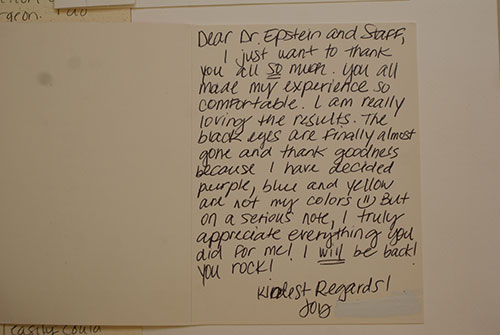 geon.
Dear Dr. Epstein and Staff,
I just want to thank
you all so much. You all
made my experience so
comfortable. I am really
loving the results. The
black eyes are finally almost
gone and thank goodness
because I have decided
purple, blue and yellow
are not my colors :) But
on a serious note, I truly
appreciate everything you
did for me! I will be back!
You rock!
Kindest Regards!
Joy
easily could